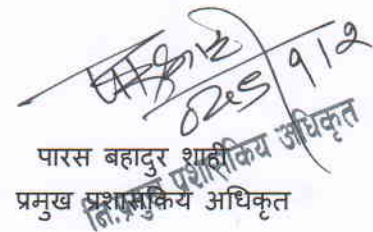 पारस बहादुर शाही
प्रमुख प्रशासकिय अधिकृत
नि.प्रमुख प्रशासकिय अधिकृत